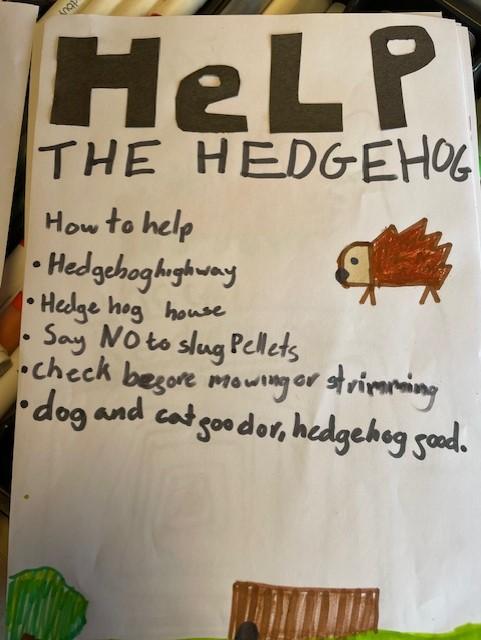 HeLP
THE HEDGEHOG
How to help
• Hedgehoghighway
• Hedge hog house
• Say NO to slug Pellets
• check begore mowing or strimming
• dog and cat goodor, hedgehog good.